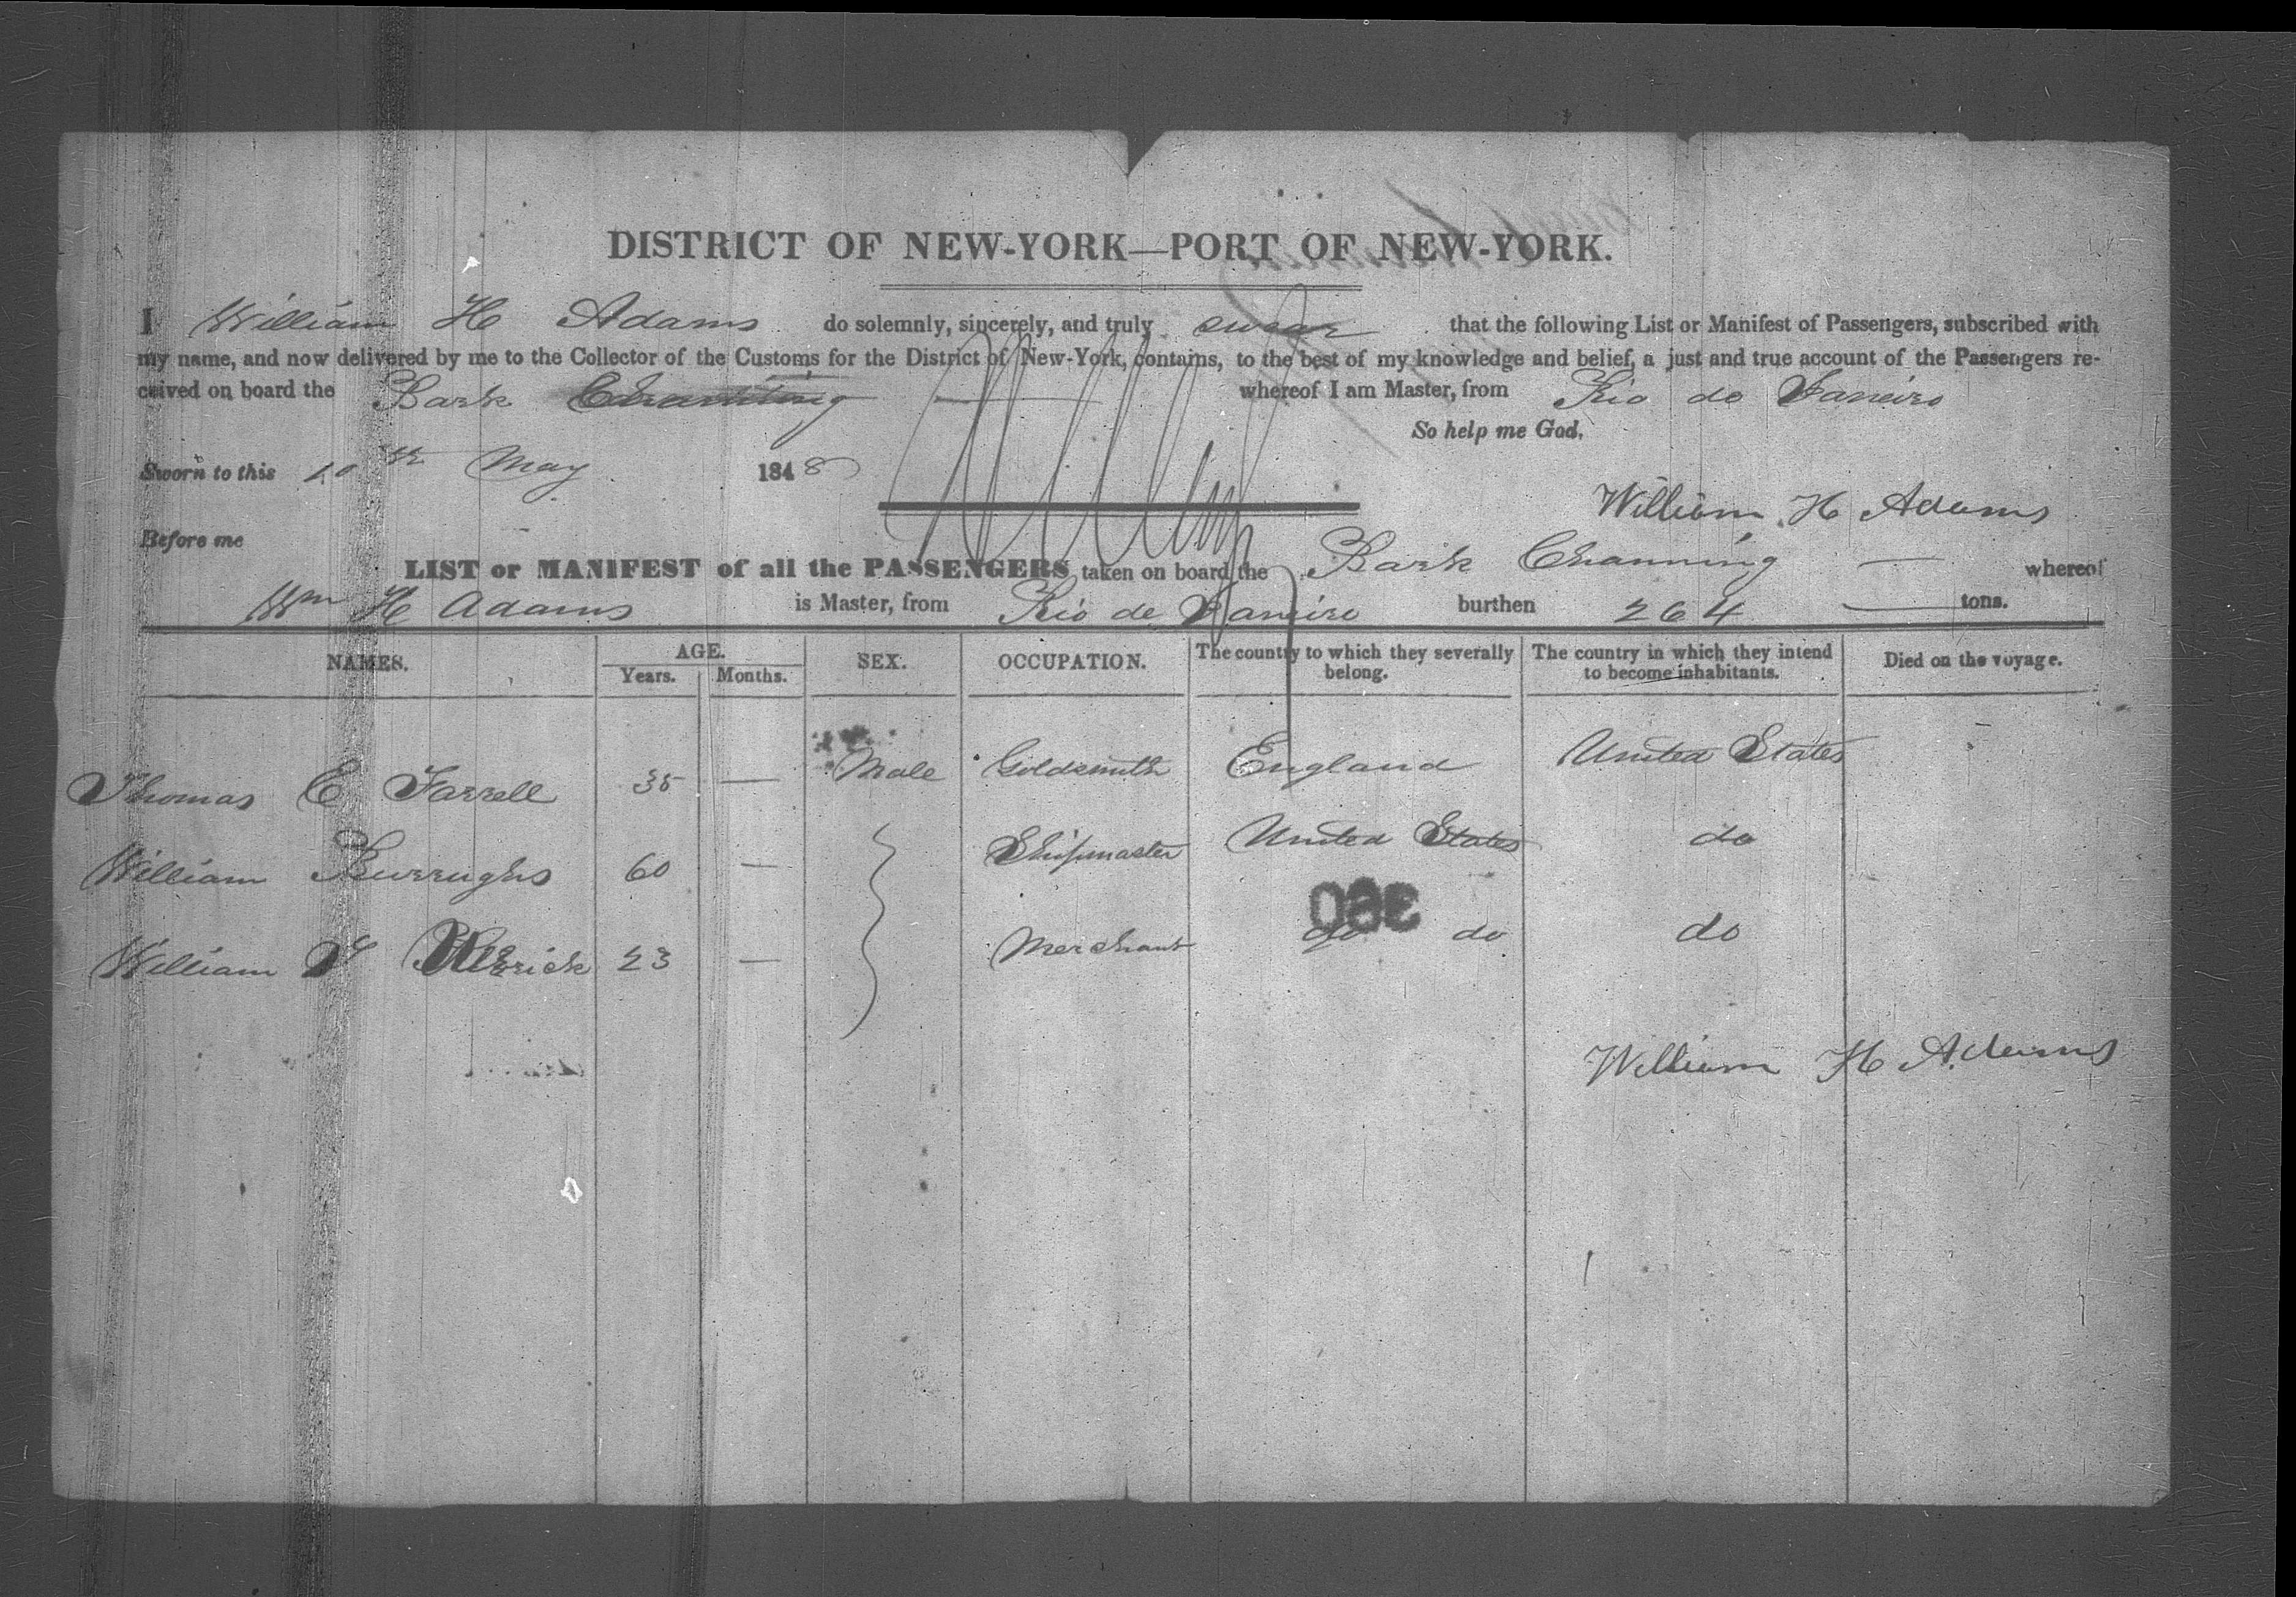 DISTRICT OF NEW-YORK—PORT OF NEW-YORK.
I William H Adams do solemnly, sincerely, and truly swear that the following List or Manifest of Passengers, subscribed with
my name, and now delivered by me to the Collector of the Customs for the District of New-York, contains, to the best of my knowledge and belief, a just and true account of the Passengers re-
ceived on board the Bark Channing — whereof I am Master, from Rio de Janeiro
So help me God.
Sworn to this 10th May 1848
William H Adams
Before me
LIST or MANIFEST of all the PASSENGERS taken on board the Bark Channing — whereof
Wm H Adams is Master, from Rio de Janeiro burthen 264 — tons.
NAMES. AGE. Years. Months. SEX. OCCUPATION. The country to which they severally belong. The country in which they intend to become inhabitants. Died on the voyage.
Thomas E Farrell 35 — Male Goldsmith England United States
William Burrughs 60 — Shipmaster United States do
360
William 23 — Merchant do do do
William H Adams